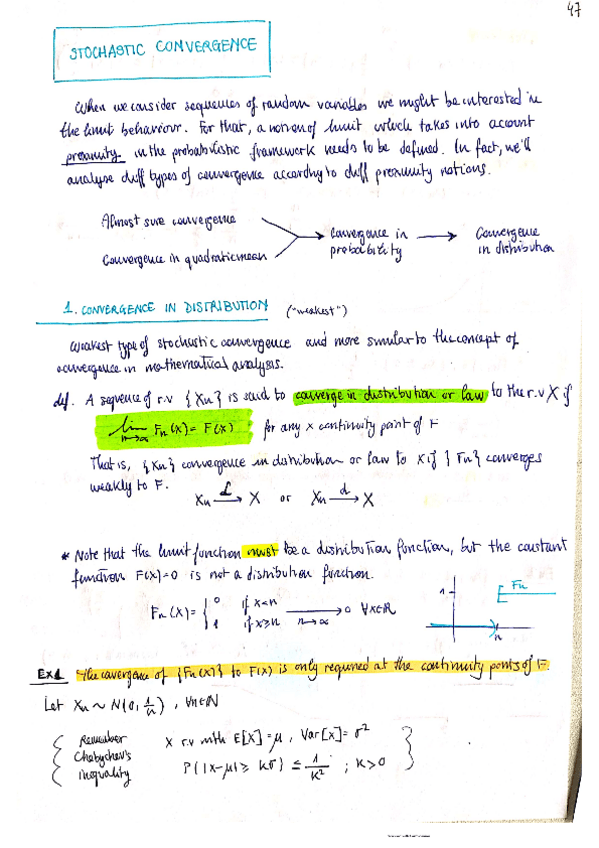 47
STOCHASTIC CONVERGENCE
When we consider sequences of random variables we might be interested in
the limit behaviour. For that, a notion of limit which takes into account
proximity in the probabilistic framework needs to be defined. In fact, we'll
analyse diff types of convergence according to diff proximity notions.
Almost sure convergence
Convergence in quadratic mean
Convergence in probability
Convergence in distribution
1. CONVERGENCE IN DISTRIBUTION ("weakest")
Weakest type of stochastic convergence and more similar to the concept of
convergence in mathematical analysis.
def. A sequence of r.v {Xn} is said to converge in distribution or law to the r.v X if
lim n→∞ Fn(x) = F(x) for any x continuity point of F
That is, {Xn} convergence in distribution or law to X if {Fn} converges
weakly to F.
Xn →ᴸ X or Xn →ᵈ X
* Note that the limit function must be a distribution function, but the constant
function F(x)=0 is not a distribution function.
Fn(x) = { 0 if x<n
1 if x≥n → n→∞ 0 ∀x∈ℝ
1 Fn n
Ex1 The convergence of {Fn(x)} to F(x) is only required at the continuity points of F.
Let Xn ~ N(0, 1/n), ∀n∈ℕ
Remember X r.v with E[X]=μ, Var[x]=σ²
Chebychev's
inequality P(|X-μ|≥ kσ) ≤ 1/k² ; k>0